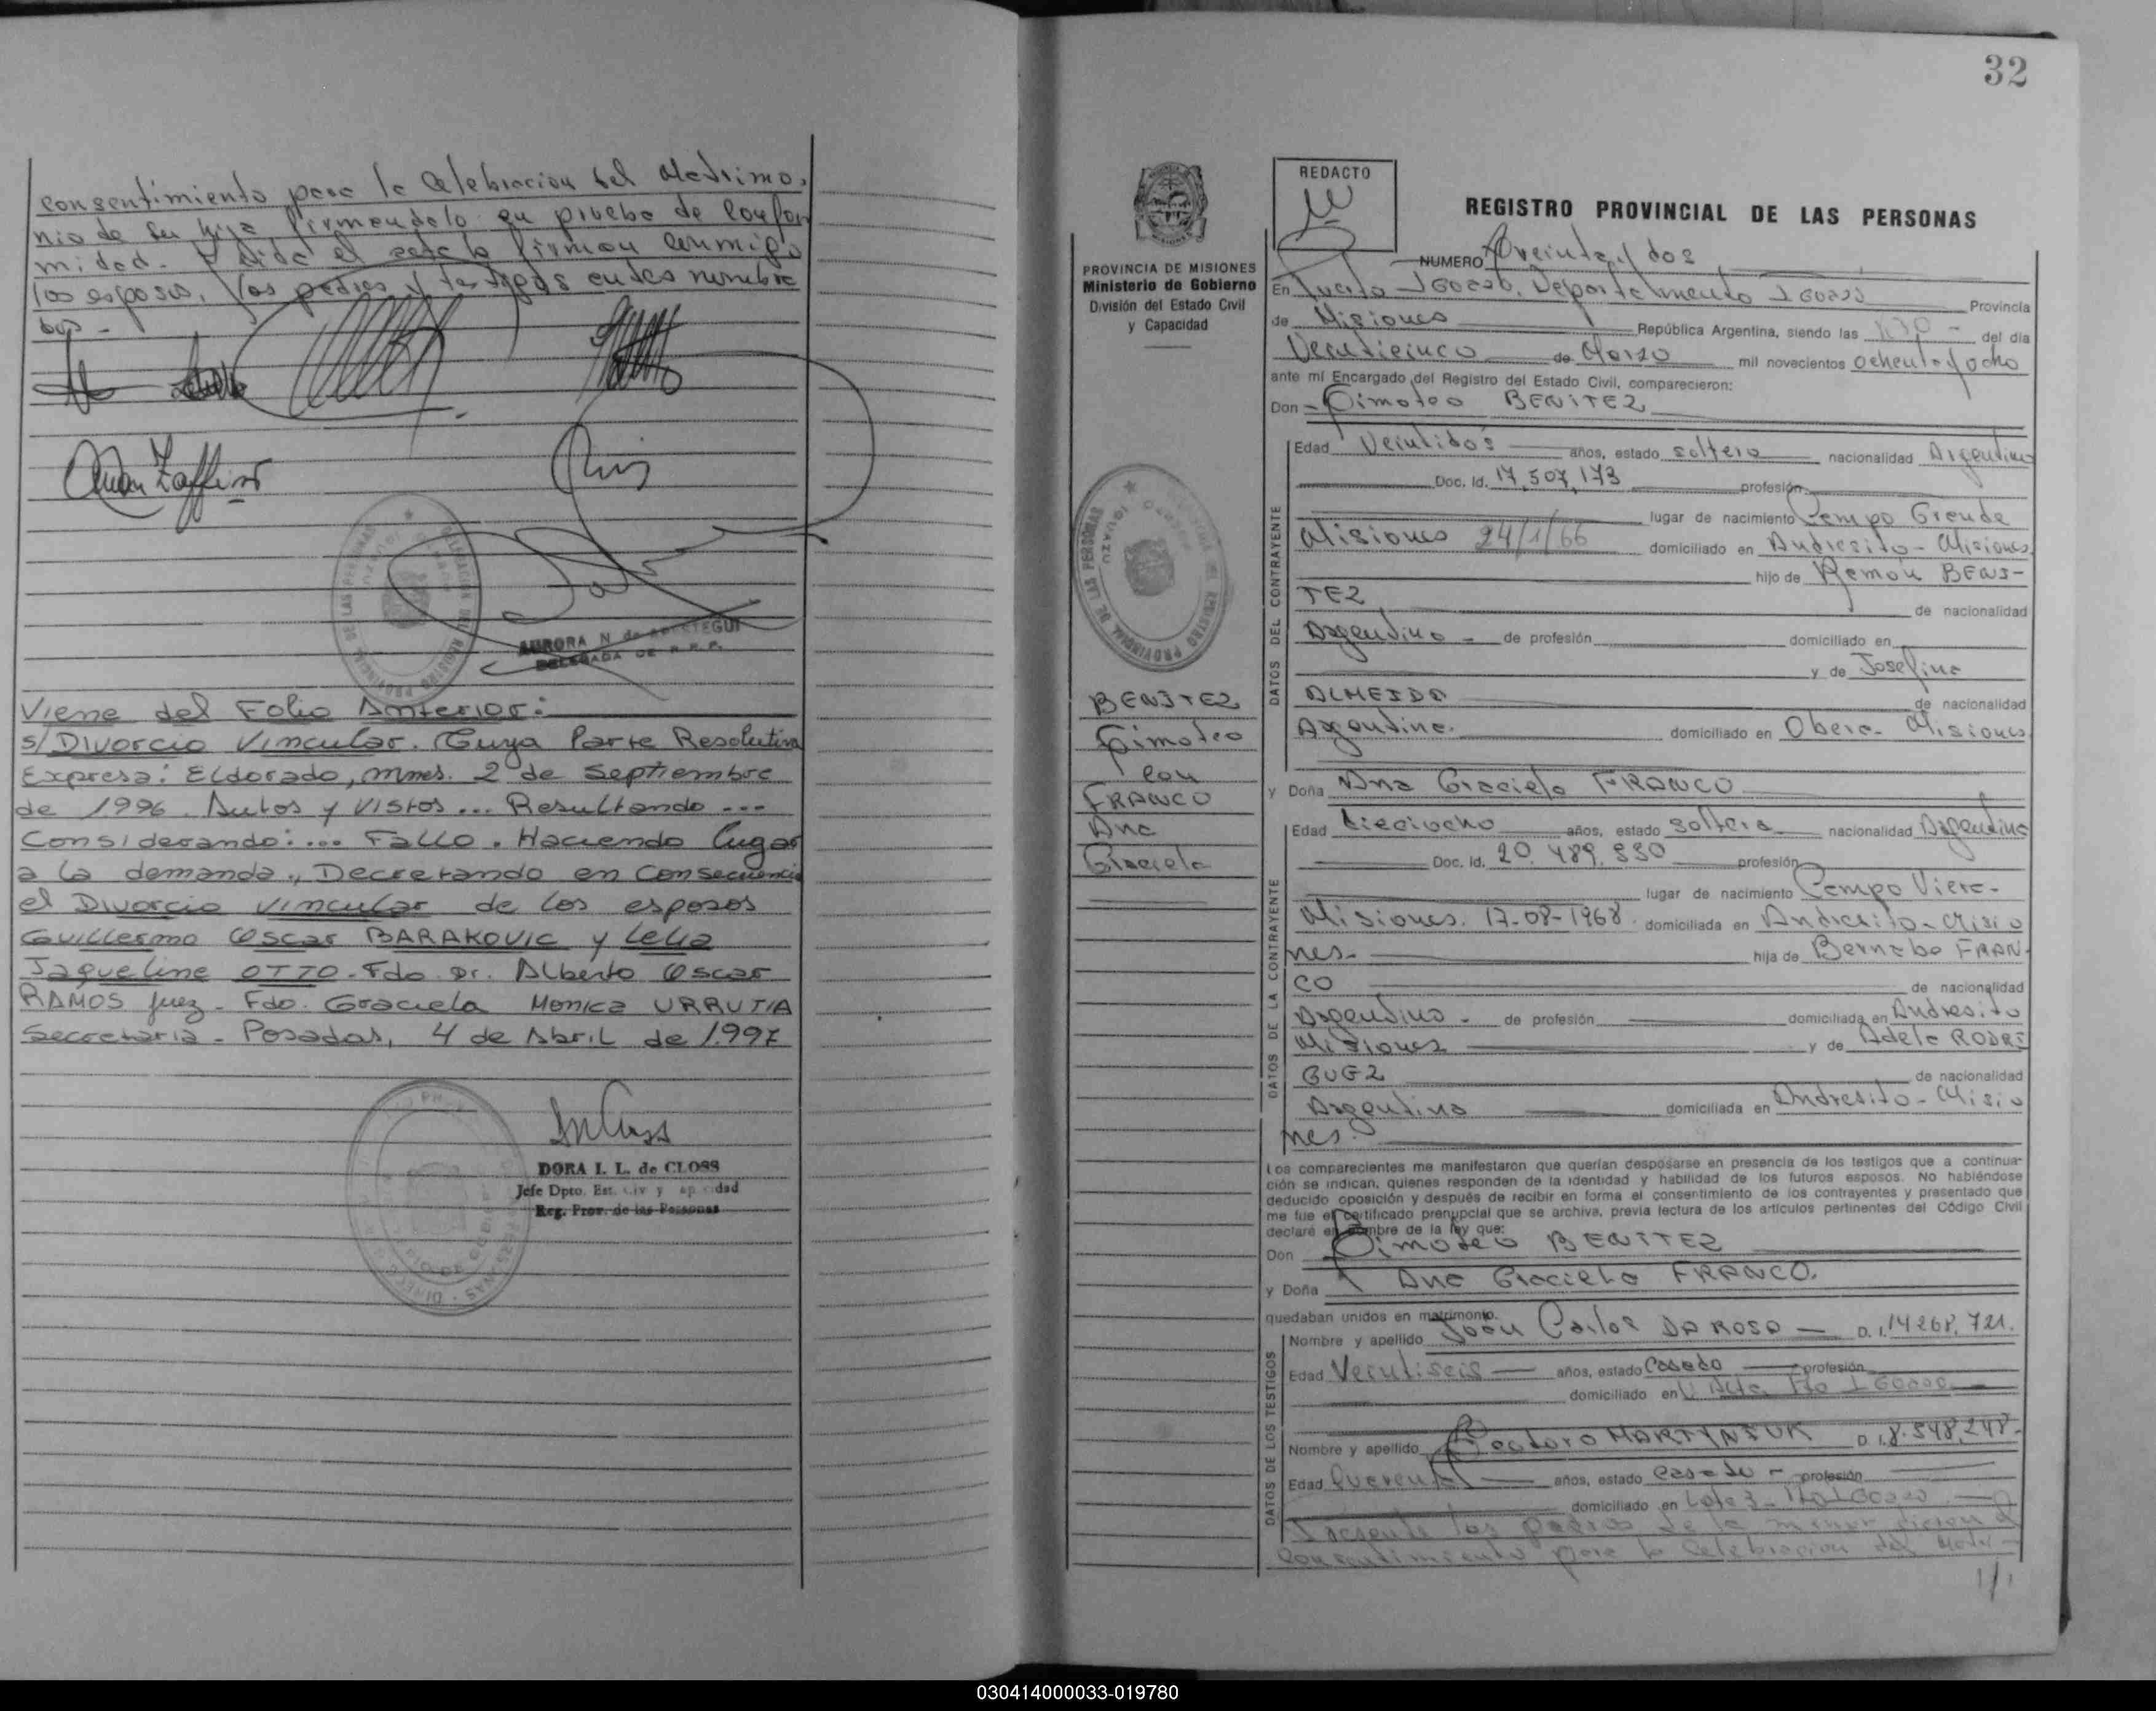 consentimiento para la Celebracion del Matrimo,
nio de su hija, firmandolo en prueba de Confor
midad. - Leida el acta la firman conmigo
los esposos, los padres y testigos antes nombra
dos -
Juan Zaffino
Ruis
AURORA N. de
DELEGADA DE R. P. P.
Viene del Folio Anterior:
s/ Divorcio Vincular. Cuya Parte Resolutiva
Expresa: Eldorado, Mnes. 2 de Septiembre
de 1996. Autos y Vistos ... Resultando ...
Considerando: ... Fallo. Haciendo Lugar
a la demanda, Decretando en Consecuencia
el Divorcio Vincular de los esposos
Guillermo Oscar BARAKOVIC y Lelia
Jaqueline OTTO - Fdo. Dr. Alberto Oscar
RAMOS Juez - Fdo. Graciela Monica URRUTIA
Secretaria - Posadas, 4 de Abril de 1.997
DORA I. L. de CLOSS
Jefe Dpto. Est. Civ y Capacidad
Reg. Prov. de las Personas
32
PROVINCIA DE MISIONES
Ministerio de Gobierno
División del Estado Civil
y Capacidad
BENITEZ
Timoteo
Con
FRANCO
Ana
Graciela
REDACTO
REGISTRO PROVINCIAL DE LAS PERSONAS
NUMERO Treinta y dos
En Puerto Iguazu, Departamento Iguazu Provincia
de Misiones República Argentina, siendo las del día
Veinticinco de Marzo mil novecientos ochenta y ocho
ante mí Encargado del Registro del Estado Civil, comparecieron:
Don - Timoteo BENITEZ
DATOS DEL CONTRAYENTE
Edad Veintidos años, estado soltero nacionalidad Argentino
Doc. Id. 17.507.173 profesión
lugar de nacimiento Campo Grande
Misiones 24/1/66 domiciliado en Andresito - Misiones
hijo de Ramón BENI-
TEZ de nacionalidad
Argentino - de profesión domiciliado en
y de Josefina
ALMEIDA de nacionalidad
Argentina. domiciliado en Obera - Misiones
y Doña Ana Graciela FRANCO
DATOS DE LA CONTRAYENTE
Edad dieciocho años, estado soltera nacionalidad Argentina
Doc. Id. 20.489.930 profesión
lugar de nacimiento Campo Viera -
Misiones. 17-08-1968 domiciliada en Andresito - Misio
nes - hija de Bernabe FRAN-
CO de nacionalidad
Argentino - de profesión domiciliada en Andresito
Misiones y de Adela RODRI
GUEZ de nacionalidad
Argentina domiciliada en Andresito - Misio
nes.
Los comparecientes me manifestaron que querían desposarse en presencia de los testigos que a continua-
ción se indican, quienes responden de la identidad y habilidad de los futuros esposos. No habiéndose
deducido oposición y después de recibir en forma el consentimiento de los contrayentes y presentado que
me fue el certificado prenupcial que se archiva, previa lectura de los artículos pertinentes del Código Civil
declaré en nombre de la ley que:
Don Timoteo BENITEZ
y Doña Ana Graciela FRANCO.
quedaban unidos en matrimonio.
DATOS DE LOS TESTIGOS
Nombre y apellido Juan Carlos DA ROSA - D. I. 14.268.721.
Edad Veintiseis - años, estado Casado - profesión
domiciliado en Iguazu -
Nombre y apellido Teodoro MARTYNIUK D. I. 8.548.248 -
Edad Cuarenta - años, estado Casado - profesión
domiciliado en Lote 3 - Pto Iguazu -
Presente los padres de la menor dieron el
Consentimiento para la Celebracion del Matri -
030414000033-019780